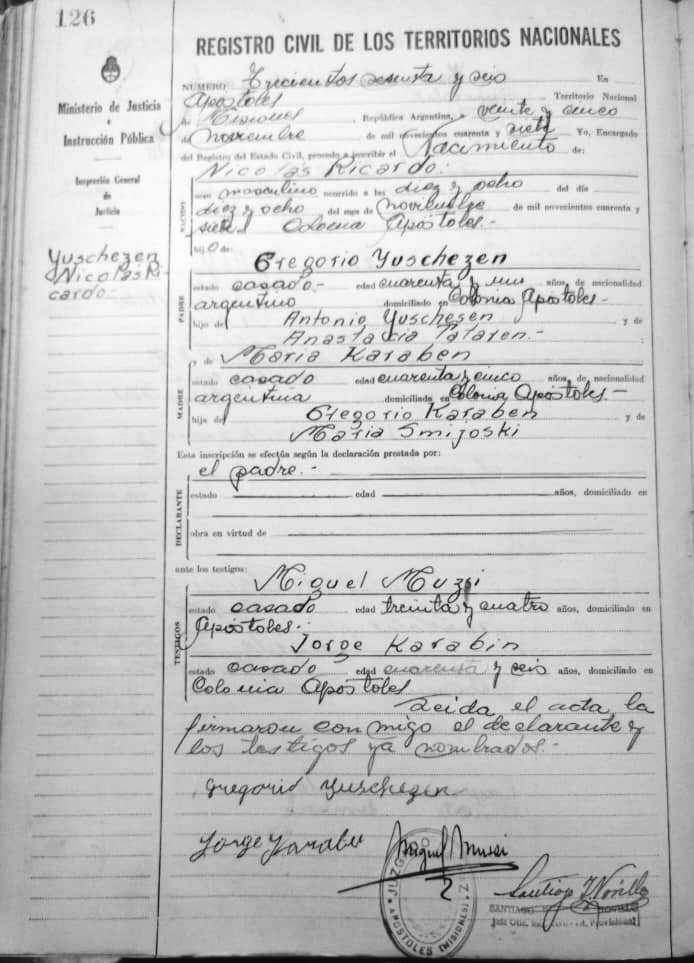 126
REGISTRO CIVIL DE LOS TERRITORIOS NACIONALES
Ministerio de Justicia
e
Instrucción Pública
Inspección General
de
Justicia
Yuschezen
Nicolas Ri
cardo.-
NUMERO Trecientos sesenta y seis En
Apóstoles Territorio Nacional
de Misiones, República Argentina, a veinte y cinco
de noviembre de mil novecientos cuarenta y siete Yo, Encargado
del Registro del Estado Civil, procedo a inscribir el Nacimiento de:
NACIDO
Nicolás Ricardo.
sexo masculino ocurrido a las diez y ocho del día
diez y ocho del mes de noviembre de mil novecientos cuarenta y
siete Colonia Apóstoles.-
hijo de:
PADRE
Gregorio Yuschezen
estado casado.- edad cuarenta y años, de nacionalidad
argentino domiciliado en Colonia Apóstoles-
hijo de Antonio Yuschesen y de
Anastacia Tataren.-
MADRE
y de Maria Karaben
estado casado edad cuarenta y cinco años, de nacionalidad
argentina domiciliada en Colonia Apóstoles.-
hija de Gregorio Karaben y de
Maria Smijoski
Esta inscripción se efectúa según la declaración prestada por:
DECLARANTE
el padre.-
estado edad años, domiciliado en
obra en virtud de
ante los testigos:
TESTIGOS
Miguel Muzsi
estado casado edad treinta y cuatro años, domiciliado en
Apóstoles.
Jorge Karabin
estado casado edad cuarenta y seis años, domiciliado en
Colonia Apóstoles
Leida el acta la
firmaron conmigo el declarante y
los testigos ya nombrados.-
Gregorio Yuschezen
Jorge Miguel Mussi
Santiago J. Novillo
SANTIAGO NOVILLO
JUZGADO DE PAZ
APOSTOLES (MISIONES)